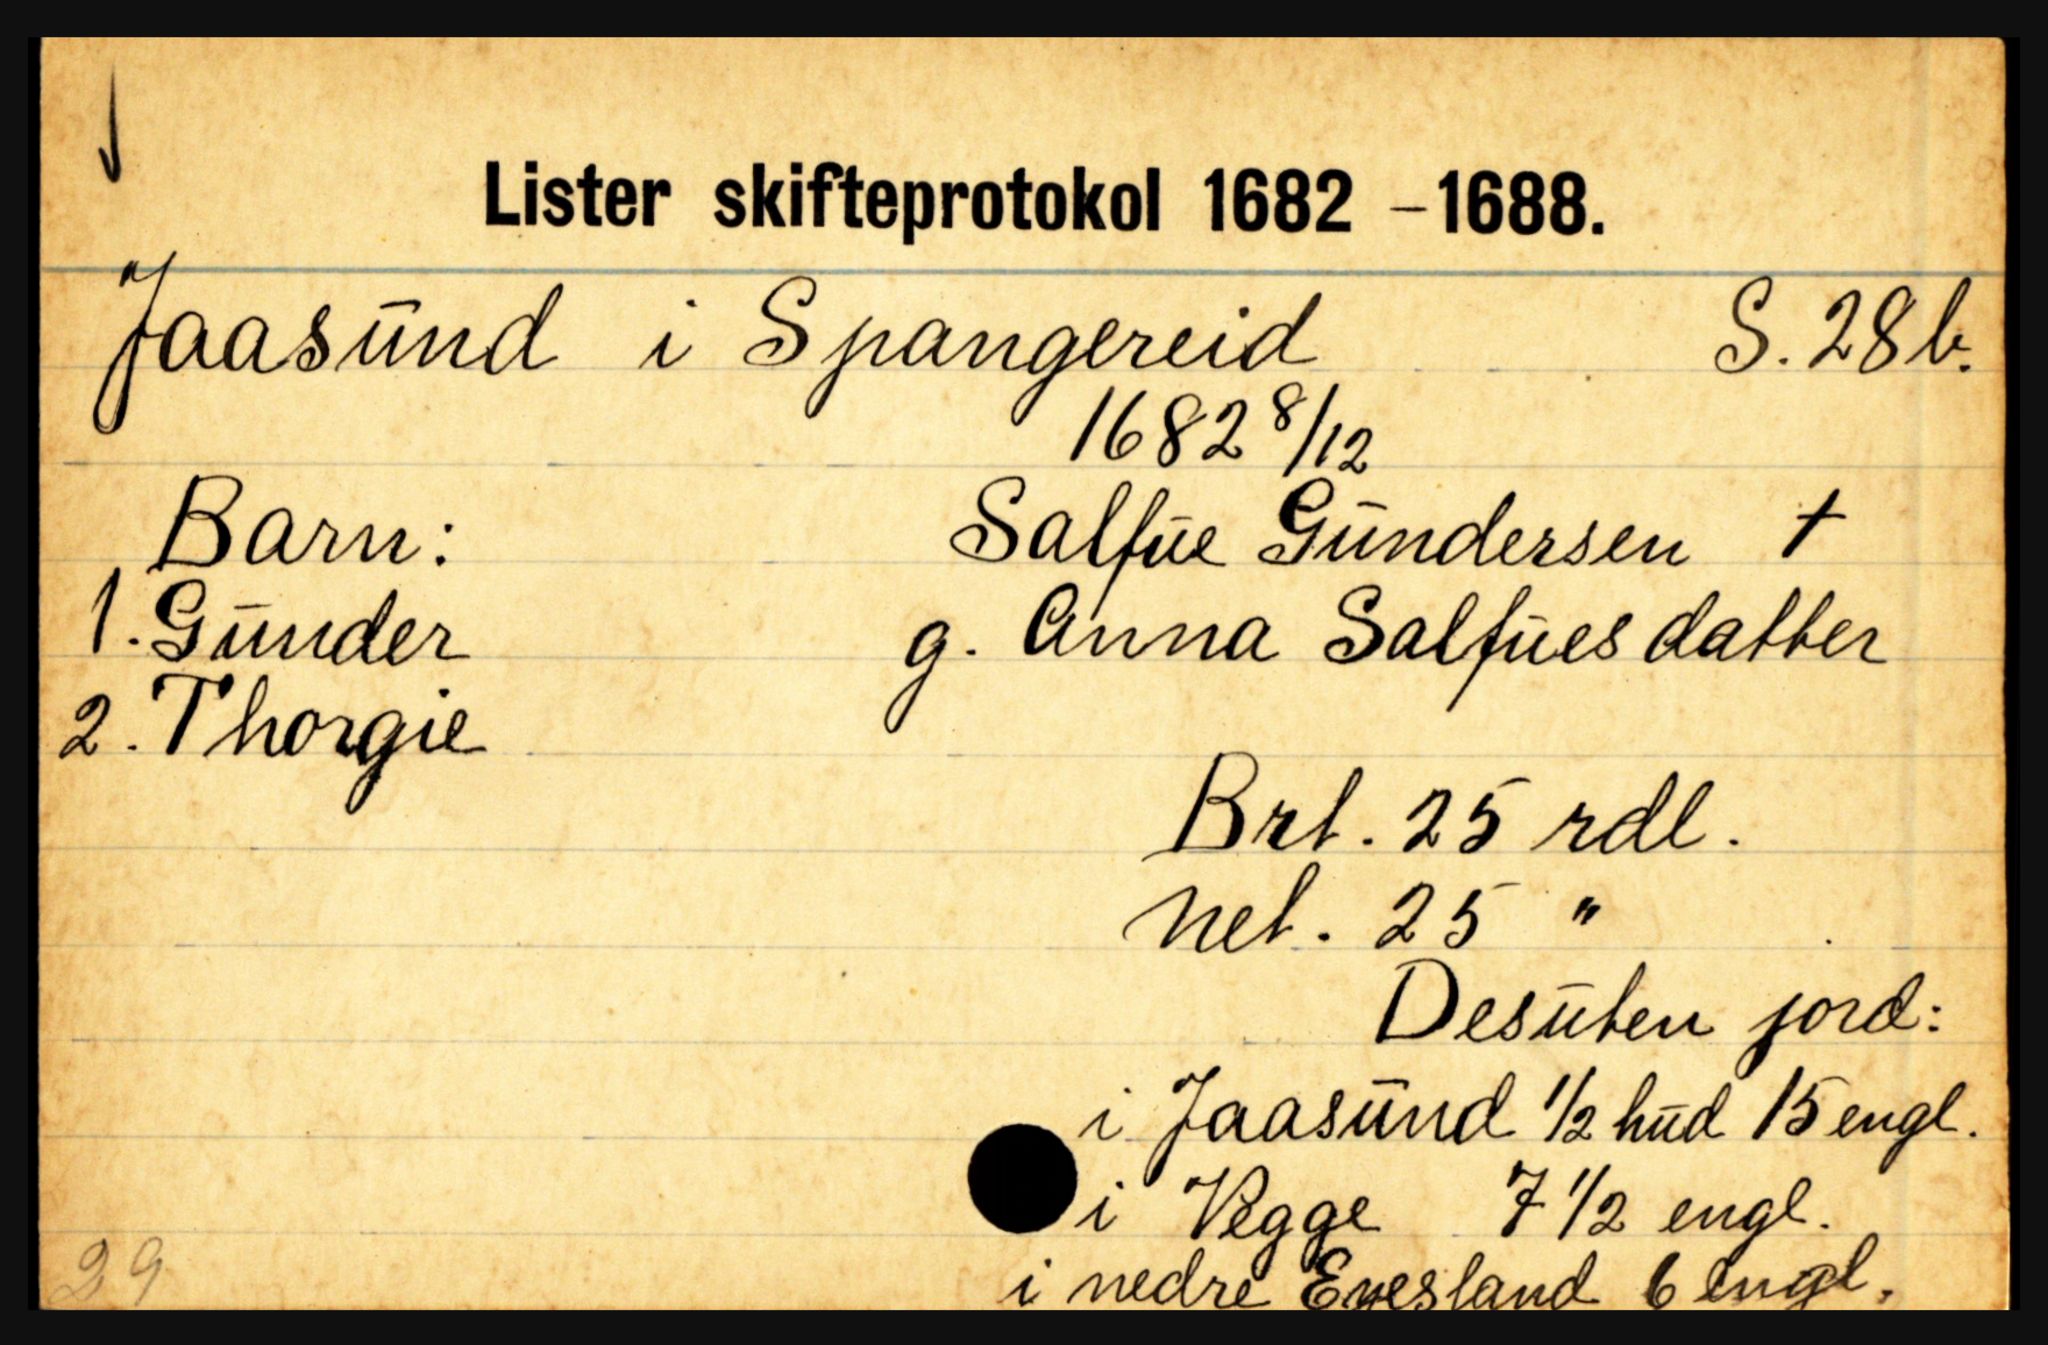 Lister skifteprotokol 1682 – 1688.
Jaasund i Spangereid S. 28b.
1682 8/12
Barn: Salfue Gundersen †
1. Gunder g. Anna Salfuesdatter
2. Thorgie
Brt. 25 rdl.
Net. 25 "
Desuten jord:
i Jaasund 1/2 hud 15 engl.
i Vegge 7 1/2 engl.
i nedre Eyesland 6 engl.
29